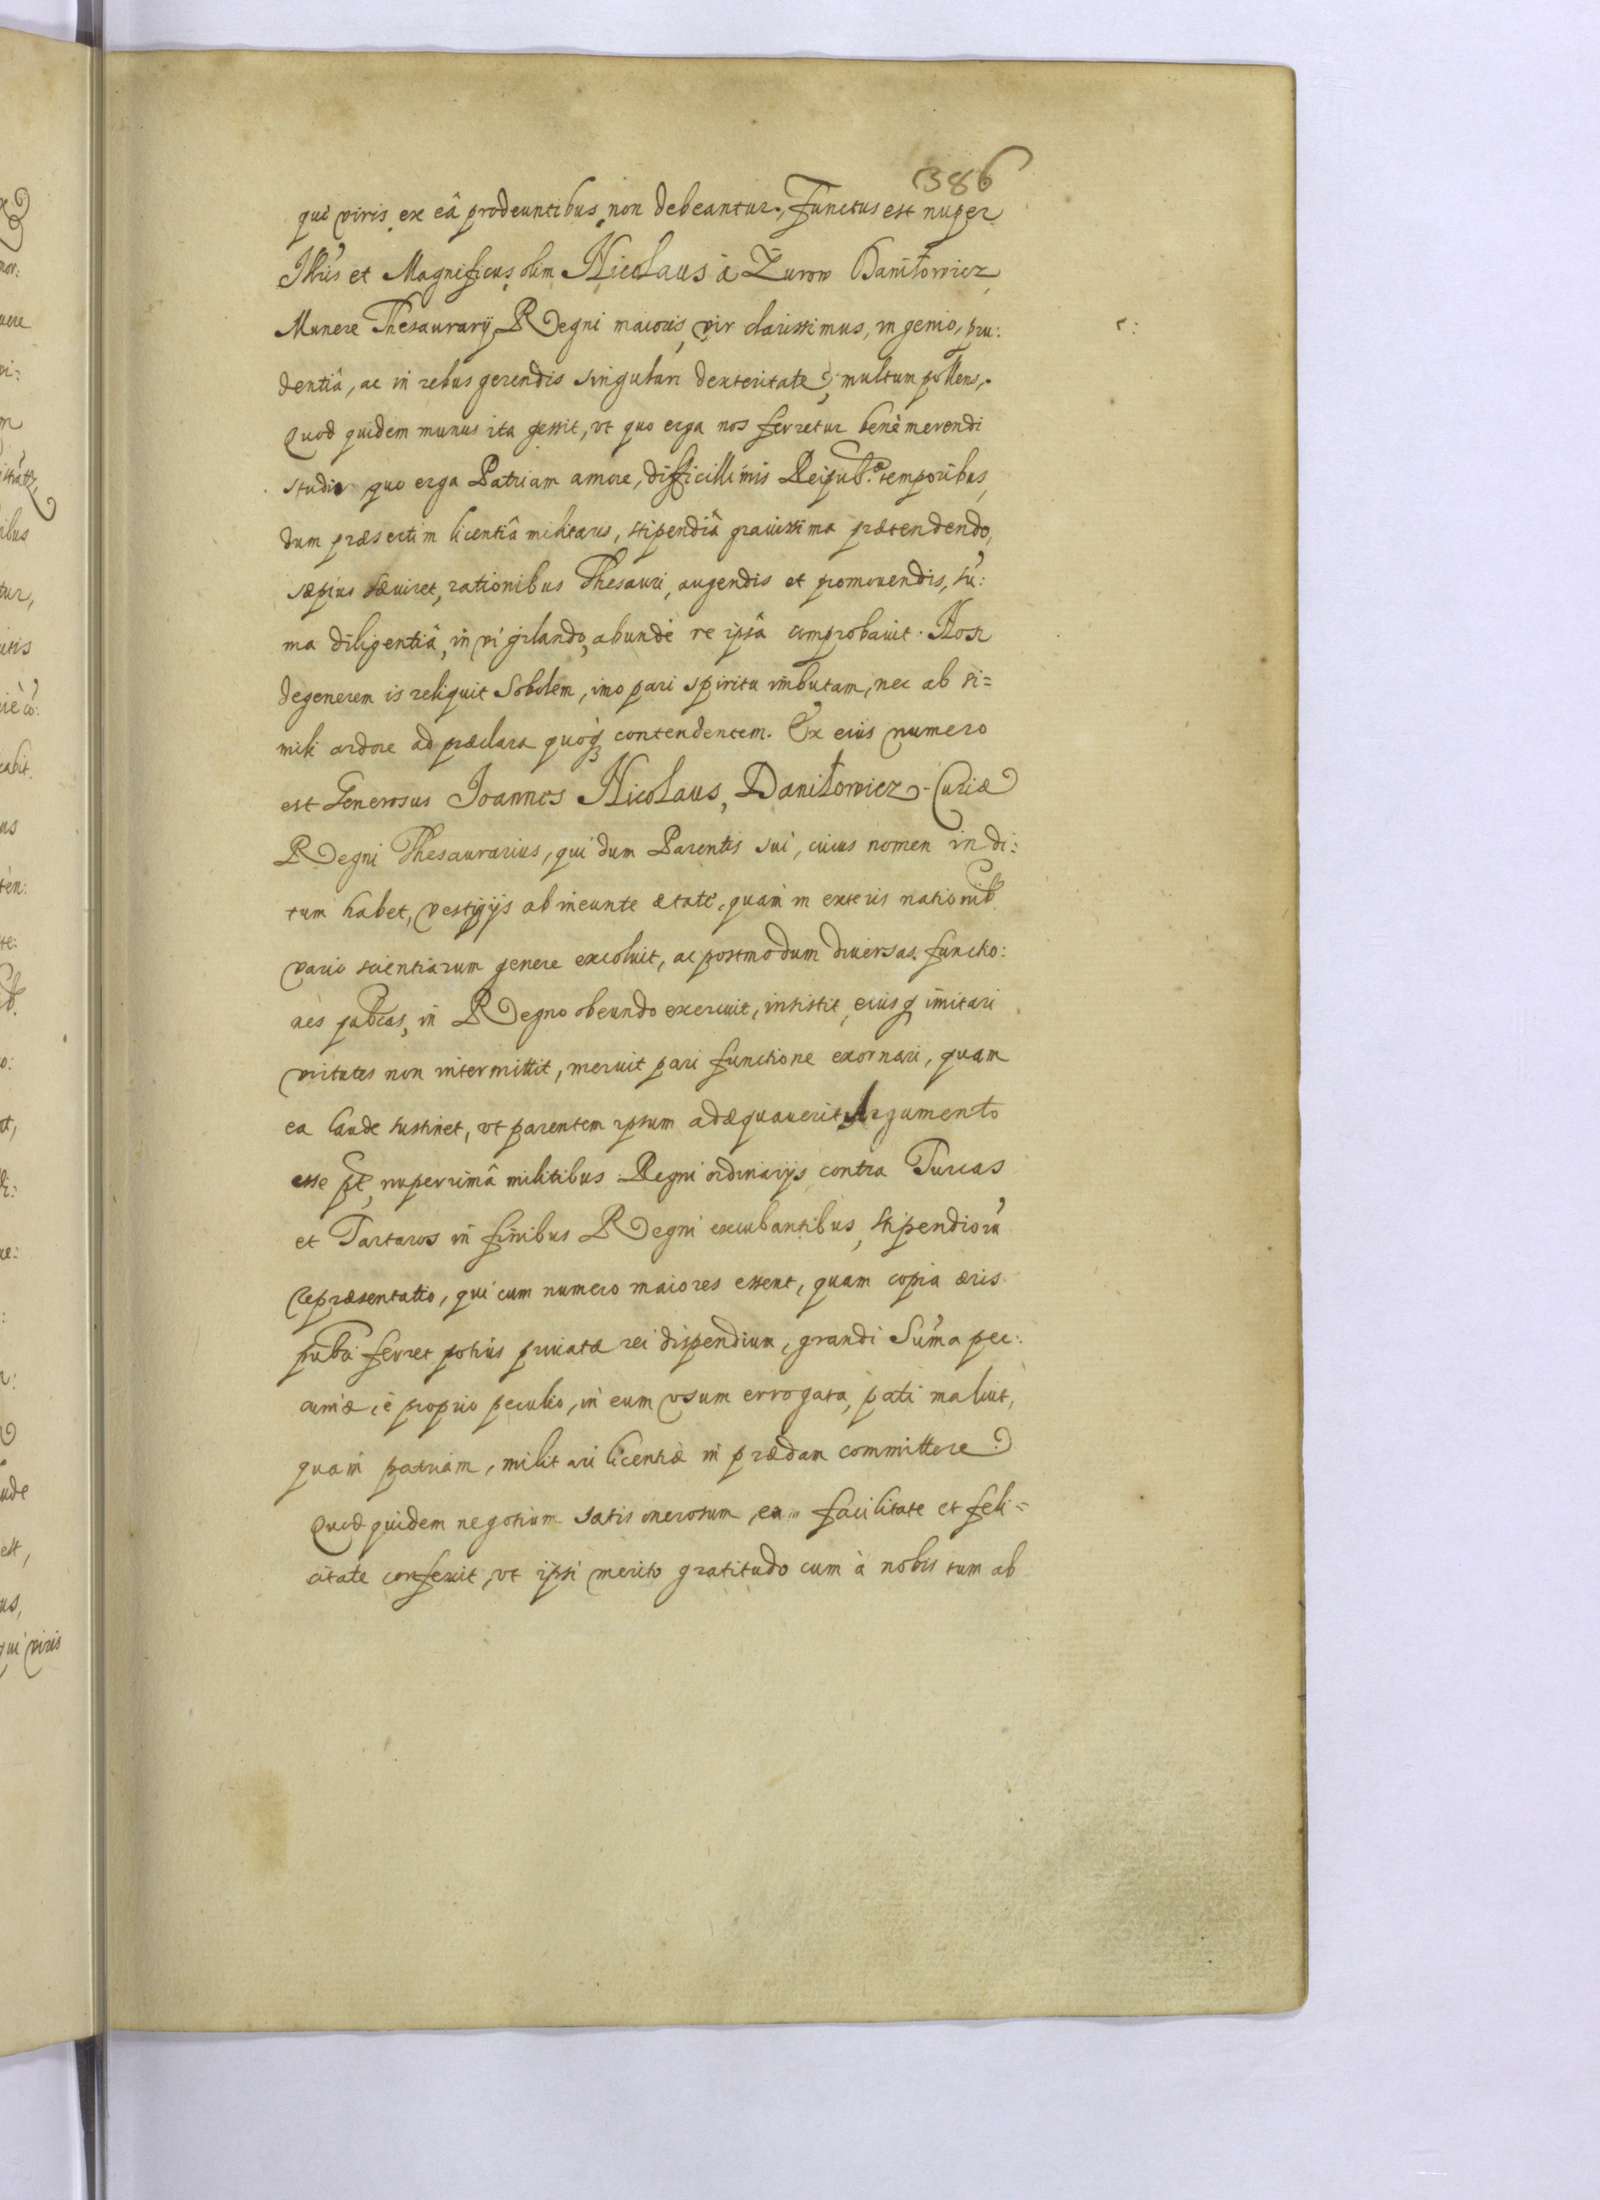 386
qui viris ex eâ prodeuntibus non debeantur. Functus est nuper
Illris et Magnificus olim Nicolaus à Zurow Daniłowicz
Munere Thesaurarij Regni maioris, vir clarissimus, ingenio, pru:
dentiâ, ac in rebus gerendis singulari dexteritate, multum pollens,
Quod quidem munus ita gessit, vt quo erga nos ferretur benè merendi
studio quo erga Patriam amore, difficillimis Reipub.e temporibus,
dum præsertim licentiâ militaris, stipendiâ grauissima prætendendo,
sæpius sæuiret, rationibus Thesauri, augendis et promouendis, sũ:
ma diligentiâ, in vigilando, abundè re ipsâ comprobauit. Non
degenerem is reliquit Sobolem, imo pari spiritu imbutam, nec ab si=
mili ardore ad præclara quoq contendentem. Ex eius numero
est Generosus Joannes Nicolaus, Daniłowicz Curiæ
Regni Thesaurarius, qui dum Parentis sui, cuius nomen indi:
tum habet, vestigijs ab ineunte ætate, quam in exteris nationib
vario scientiarum genere excoluit, ac postmodum diuersas functio:
nes publcas, in Regno obeundo exercuit, insistit, eiusq imitari
virtutes non intermittit, meruit pari functione exornari, quam
ea laude sustinet, vt parentem ipsum adæquauerit Argumento
esse pt, nuperrimâ militibus Regni ordinarijs contra Turcas
et Tartaros in finibus Regni excubantibus, stipendiorũ
repræsentatio, qui cum numero maiores essent, quam copia æris
publci ferret potius priuatæ rei dispendium, grandi Sũma pec:
uniæ, è proprio peculio, in eum vsum errogata, pati maluit,
quam patriam, militari licentiæ in prædam committere
Quod quidem negotium satis onerosum, ea facilitate et feli=
citate confecit, vt ipsi merito gratitudo cum à nobis tum ab